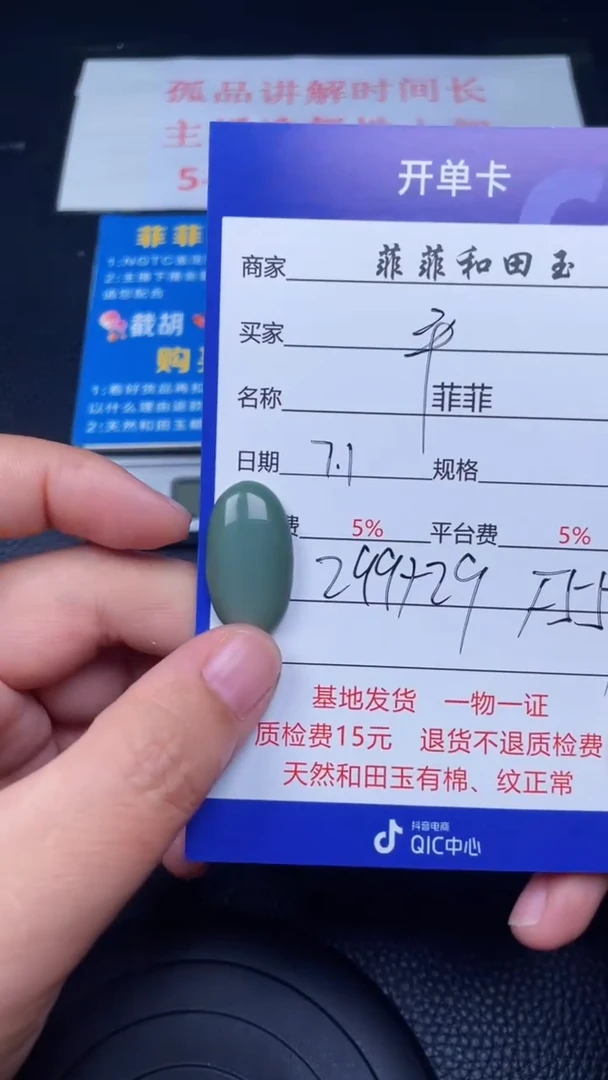 孤品讲解时间长
主
5-
开单卡
菲菲
1:NGTC
2:主播下播
截胡
购
1:看好货品再拍
以什么理由退款
2:天然和田玉
商家 菲菲和田玉
买家
名称 菲菲
日期 7.1 规格
费 5% 平台费 5%
299+29
基地发货 一物一证
质检费15元 退货不退质检费
天然和田玉有棉、纹正常
抖音电商
QIC中心